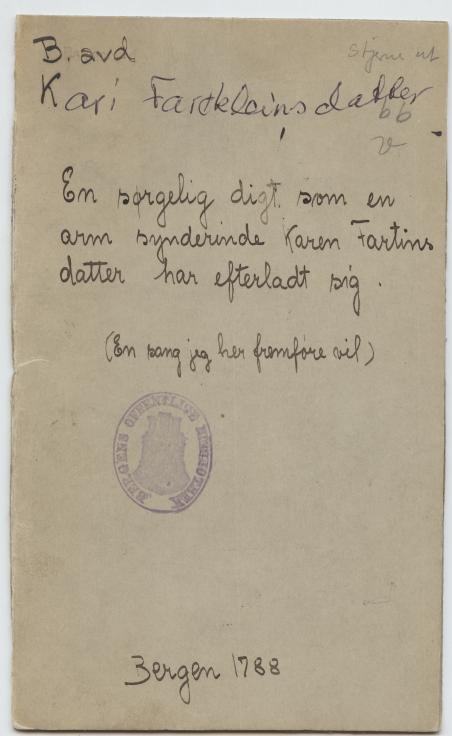 B. avd.
stjerne ut
Kari Fartkleinsdatter
bb
v
En sørgelig digt som en
arm synderinde Karen Fartins
datter har efterladt sig .
(En sang jeg her fremføre vil)
BERGENS OFFENTLIGE BIBLIOTHEK
Bergen 1788